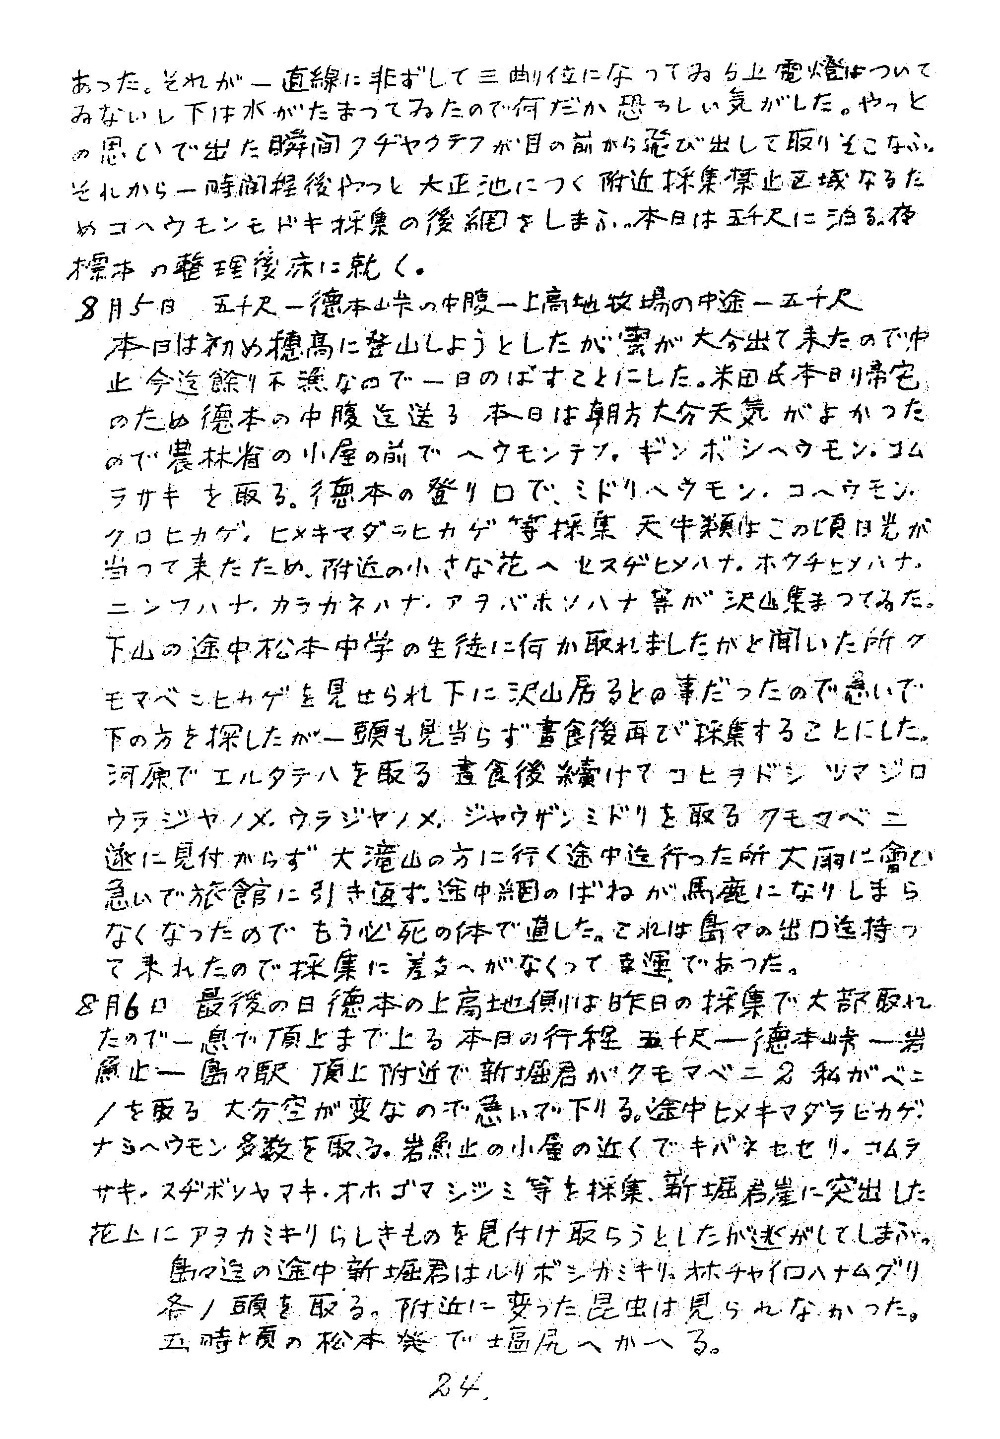 あった。それが一直線に非ずして三曲り位になってゐる上電燈はついて
ゐないし下は水がたまつてゐたので何だか恐ろしい気がした。やっと
の思いで出た瞬間クヂヤクテフが目の前から飛び出して取りそこなふ。
それから一時間程後やつと大正池につく附近採集禁止区域なるた
めコヘウモンモドキ採集の後網をしまふ。本日は五千尺に泊る。夜
標本の整理後床に就く。
8月5日 五千尺ー德本峠の中腹ー上高地牧場の中途ー五千尺
本日は初め穂高に登山しようとしたが雲が大分出て来たので中
止今迄餘り不漁なので一日のばすことにした。米田氏本日帰宅
のため德本の中腹迄送る 本日は朝方大分天気がよかつた
ので農林省の小屋の前でヘウモンテフ。ギンボシヘウモン。コム
ラサキを取る。德本の登り口で、ミドリヘウモン。コヘウモン。
クロヒカゲ。ヒメキマダラヒカゲ等採集 天牛類はこの頃日光が
当つて来たため、附近の小さな花へセスヂヒメハナ。ホウチヒメハナ。
ニンフハナ。カラカネハナ。アヲバホソハナ等が沢山集まつてゐた。
下山の途中松本中学の生徒に何か取れましたかと聞いた所ク
モマベニヒカゲを見せられ下に沢山居るとの事だったので急いで
下の方を探したが一頭も見当らず晝食後再び採集することにした。
河原でエルタテハを取る 晝食後續けてコヒヲドシ ツマジロ
ウラジヤノメ。ウラジヤノメ。ジャウザンミドリを取るクモマベニ
遂に見付からず 大滝山の方に行く途中迄行った所大雨に會ひ
急いで旅館に引き返す。途中網のばねが馬鹿になりしまら
なくなったのでもう必死の体で直した。これは島々の出口迄持つ
て来れたので採集に差支へがなくって幸運であつた。
8月6日 最後の日德本の上高地側は昨日の採集で大部取れ
たので一息で頂上まで上る 本日の行程 五千尺ー德本峠ー岩
魚止ー島々駅 頂上附近で新堀君がクモマベニ2私がベニ
1を取る 大分空が変なので急いで下りる。途中ヒメキマダラヒカゲ。
ナミヘウモン多数を取る。岩魚止の小屋の近くでキバネセセリ。コムラ
サキ。スヂボソヤマキ。オホゴマシジミ等を採集、新堀君崖に突出した
花上にアヲカミキリらしきものを見付け取らうとしたが逃がしてしまふ。
島々迄の途中新堀君はルリボシカミキリ。オホチャイロハナムグリ
各1頭を取る。附近に変つた昆虫は見られなかった。
五時頃の松本発で塩尻へかへる。
24.